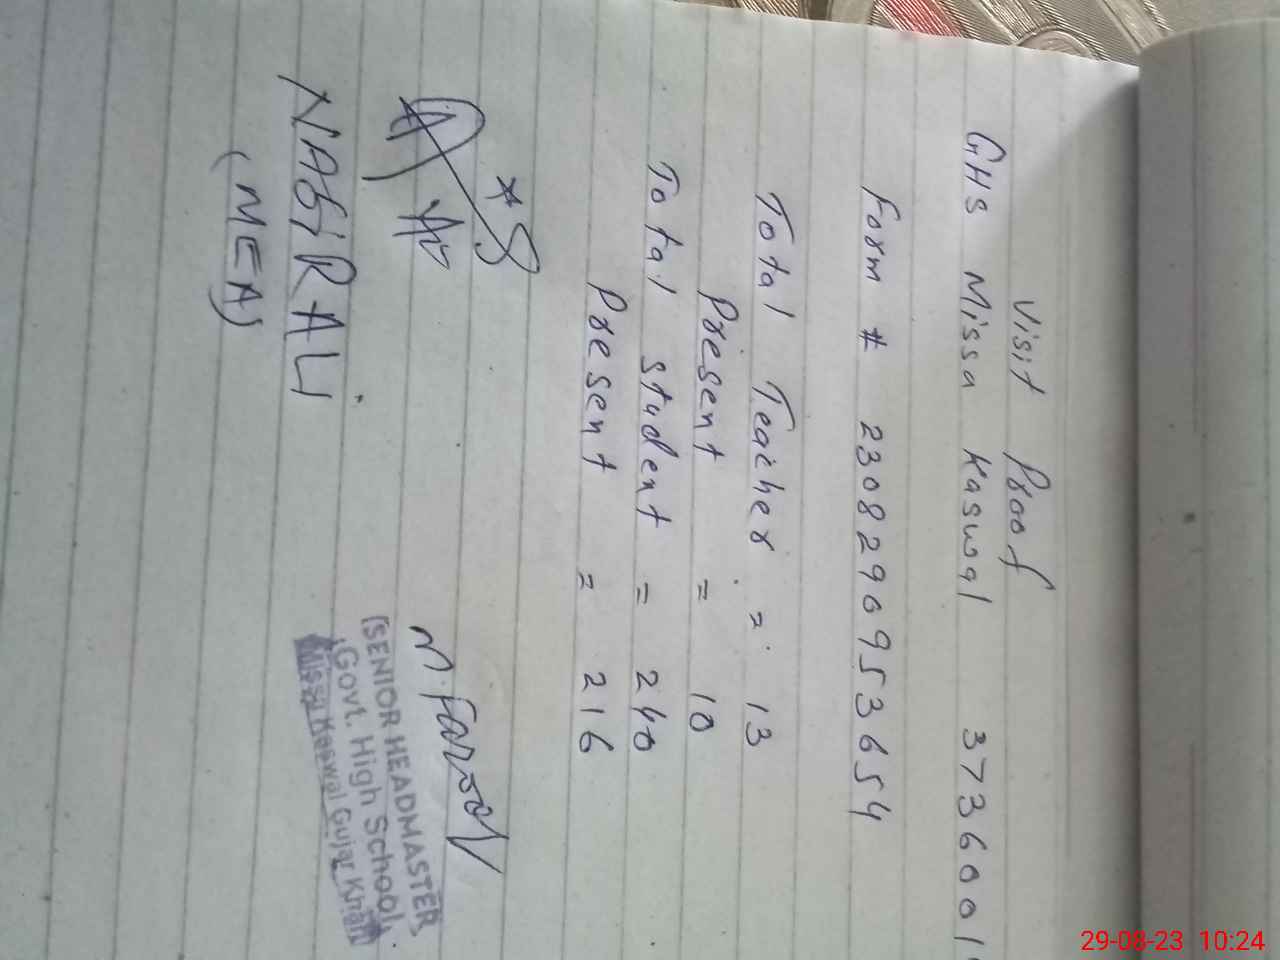 Visit Proof
GHS Missa Kaswal 3736001
Form # 2308290953654
Total Teacher = 13
Present = 10
Total student = 240
Present = 216
M. Farooq
(SENIOR HEADMASTER)
Govt. High School,
Missa Keswal Gujar Khan
NASiR ALi
(MEA)
29-08-23 10:24